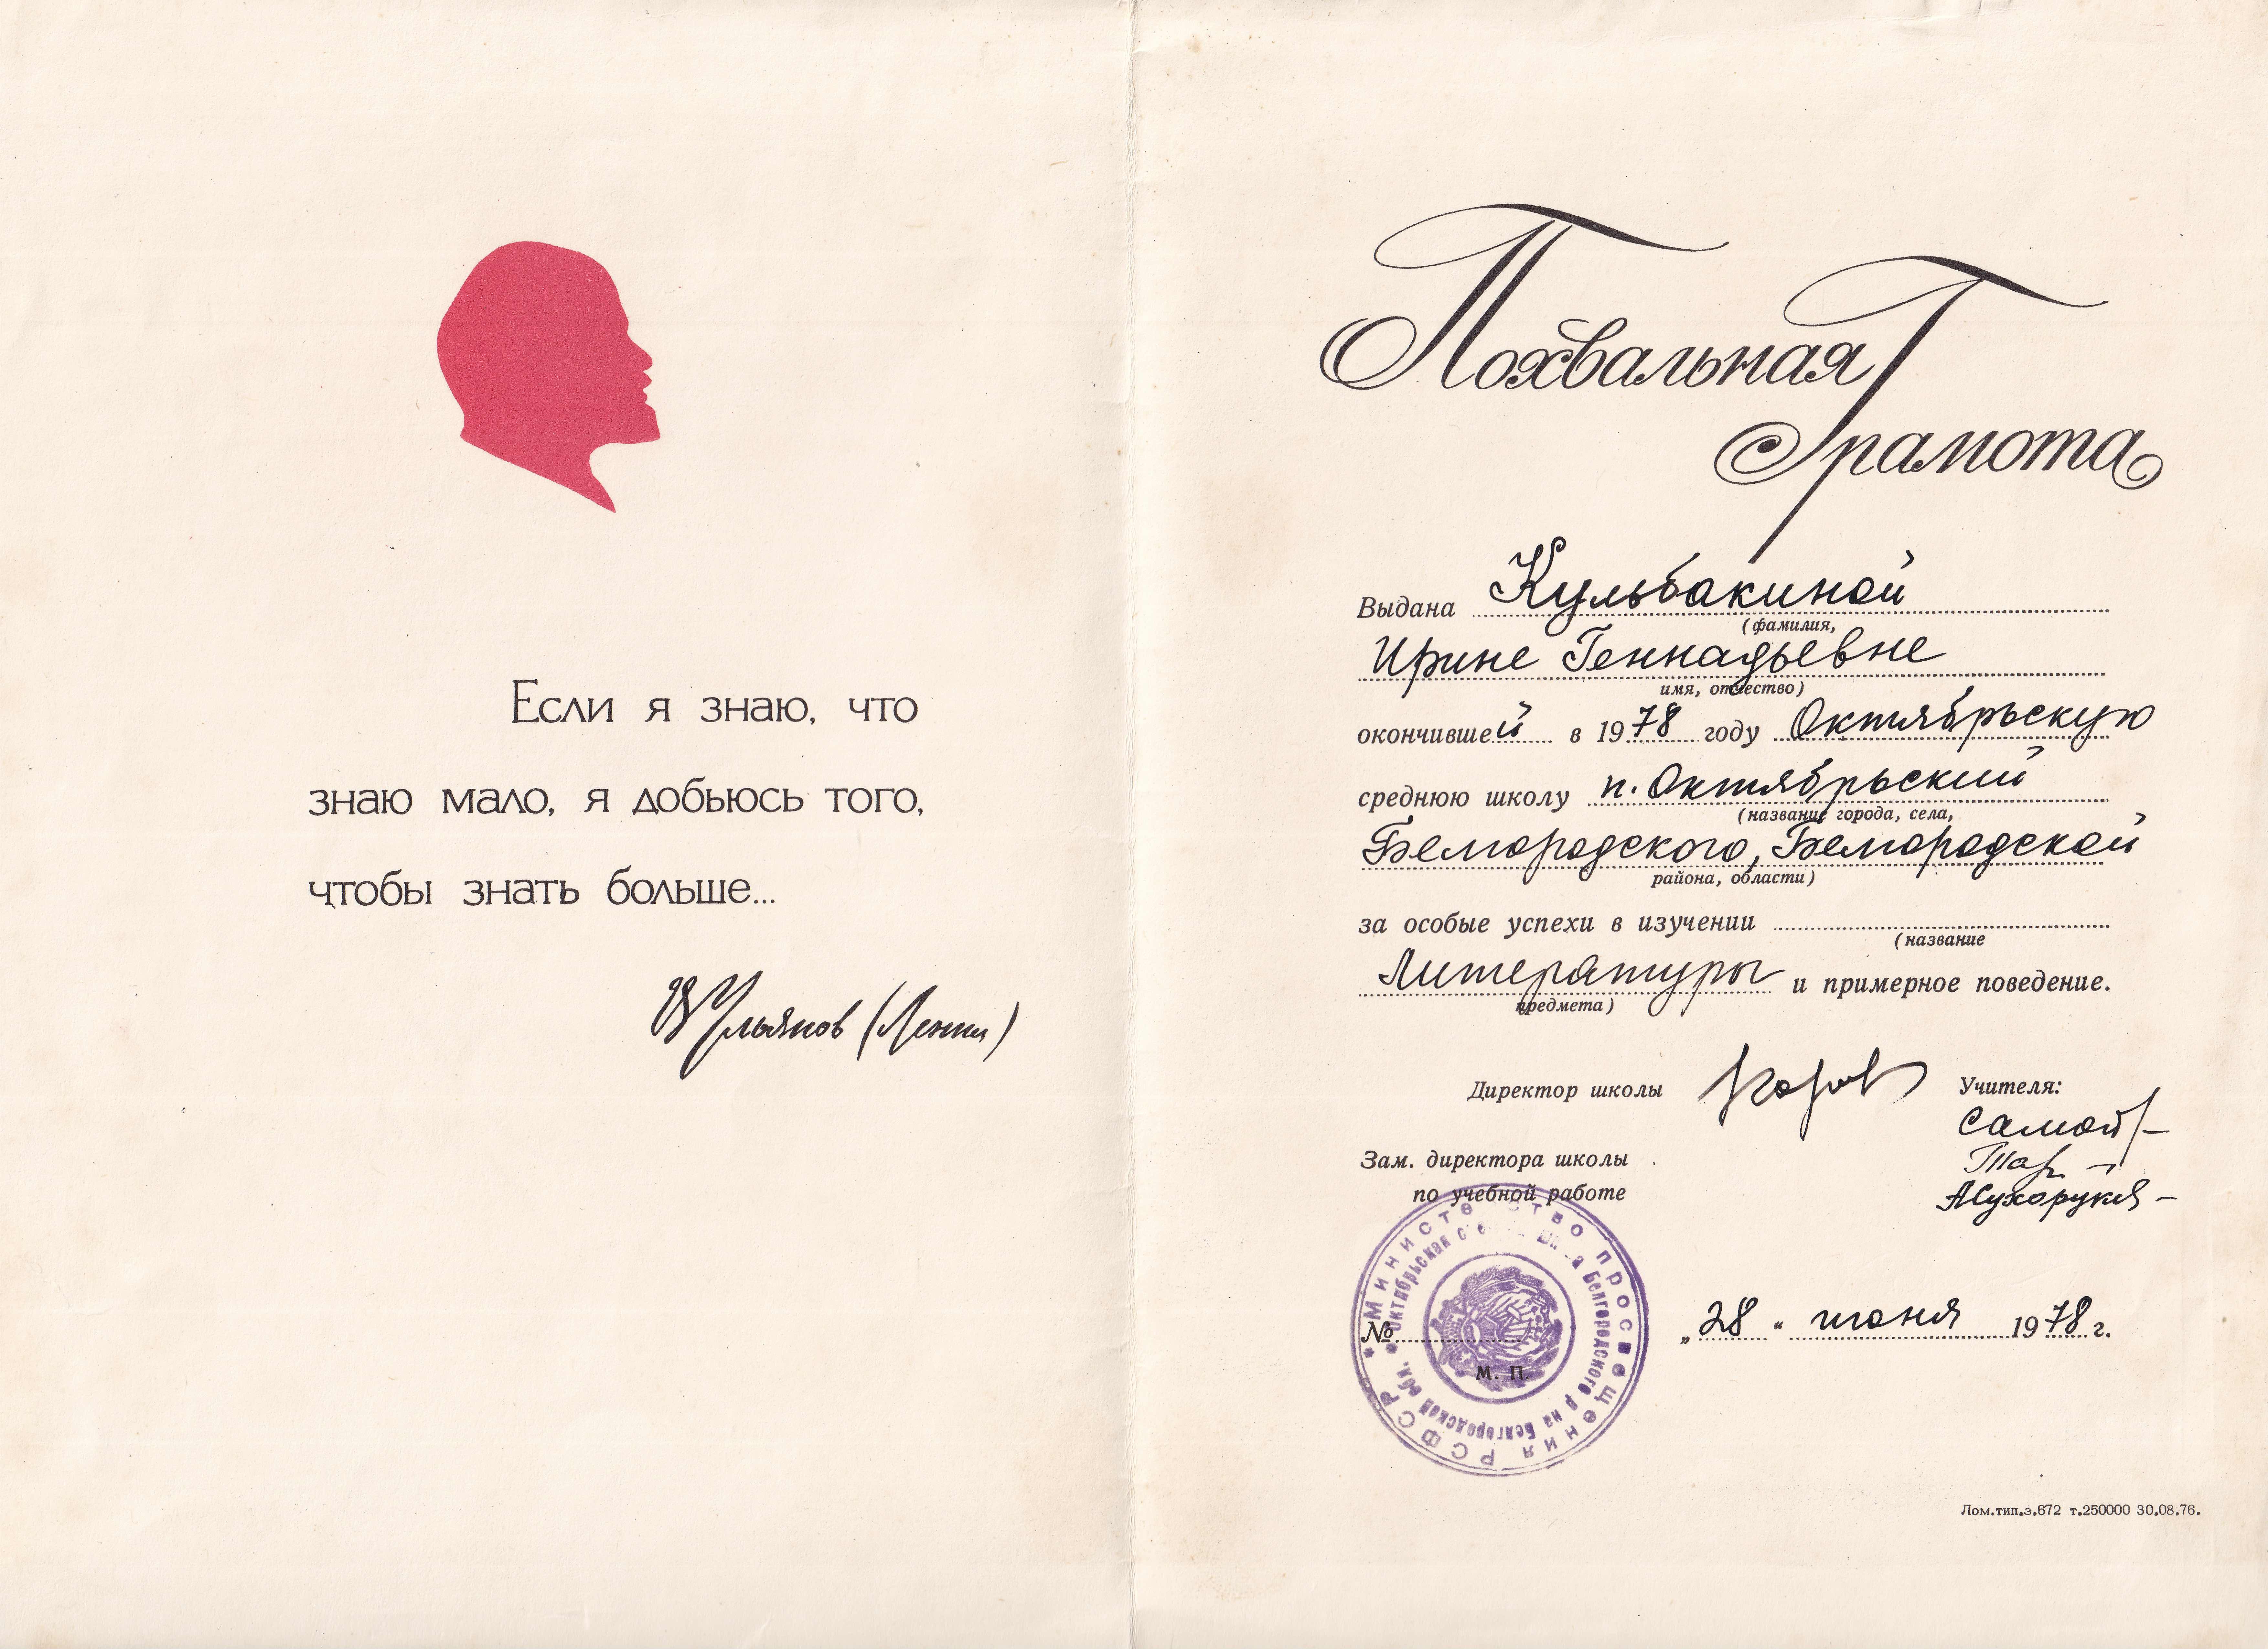 Если я знаю, что
знаю мало, я добьюсь того,
чтобы знать больше...
В Ульянов (Ленин)
Похвальная
Грамота
Выдана Кульбакиной
(фамилия,
Ирине Геннадьевне
имя, отчество)
окончившей в 1978 году Октябрьскую
среднюю школу п. Октябрьский
(название города, села,
Белгородского, Белгородской
района, области)
за особые успехи в изучении
(название
Литературы и примерное поведение.
предмета)
Директор школы Учителя:
Зам. директора школы
по учебной работе
МИНИСТЕРСТВО ПРОСВЕЩЕНИЯ РСФСР
Октябрьская Белгородского Белгородской обл.
№
М. П.
„28“ июня 1978 г.
Лом.тип.з.672 т.250000 30.08.76.